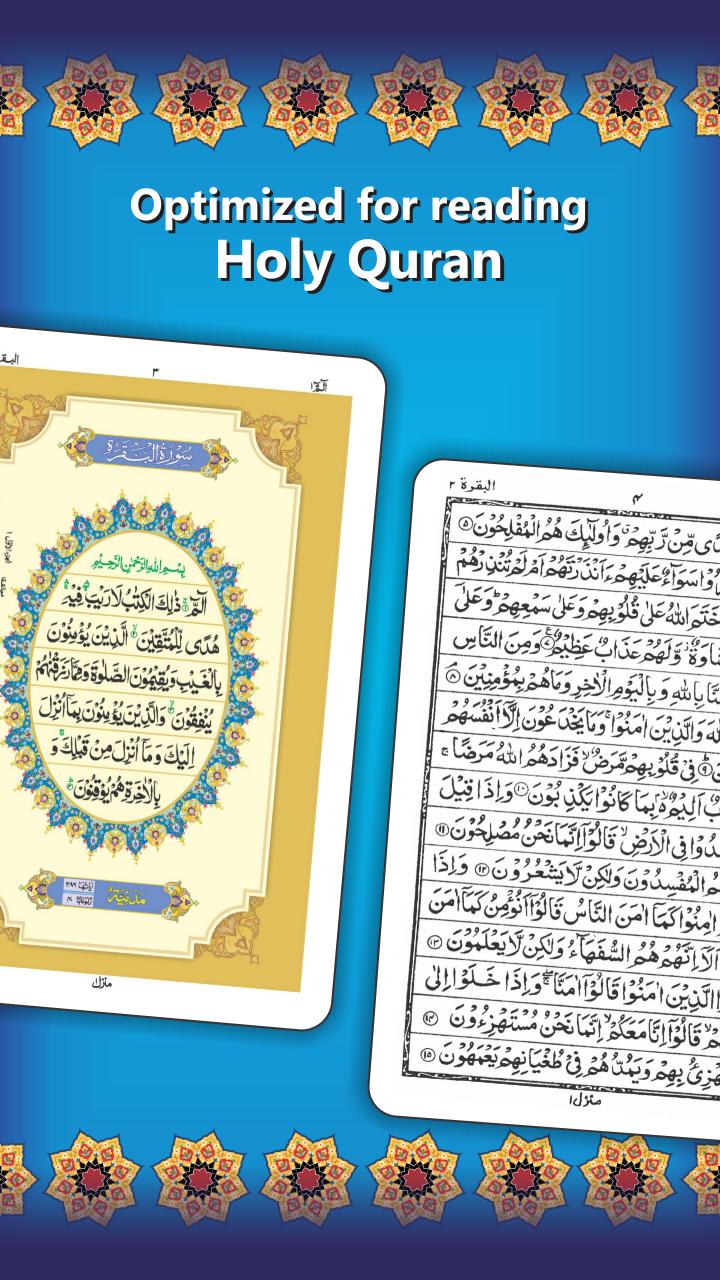 Optimized for reading
Holy Quran
البق
٣
الٓمّٓ ١
سُوْرَةُ الْبَقَرَةِ
بِسْمِ اللهِ الرَّحْمٰنِ الرَّحِيْمِ
الٓمّٓ ۚ ذٰلِكَ الْكِتٰبُ لَا رَيْبَ ۛ فِيْهِ ۛ
هُدًى لِّلْمُتَّقِيْنَ ۙ الَّذِيْنَ يُؤْمِنُوْنَ
بِالْغَيْبِ وَيُقِيْمُوْنَ الصَّلٰوةَ وَمِمَّا رَزَقْنٰهُمْ
يُنْفِقُوْنَ ۙ وَالَّذِيْنَ يُؤْمِنُوْنَ بِمَآ اُنْزِلَ
اِلَيْكَ وَمَآ اُنْزِلَ مِنْ قَبْلِكَ ۚ وَ
بِالْاٰخِرَةِ هُمْ يُوْقِنُوْنَ ؕ
مَدَنِيَّةٌ
اٰيَاتُهَا ٢٨٦
رُكُوْعَاتُهَا ٤٠
منزل
البقرة ٢
٤
مِّنْ رَّبِّهِمْ ۗ وَاُولٰٓئِكَ هُمُ الْمُفْلِحُوْنَ ٥
سَوَآءٌ عَلَيْهِمْ ءَاَنْذَرْتَهُمْ اَمْ لَمْ تُنْذِرْهُمْ
خَتَمَ اللهُ عَلٰى قُلُوْبِهِمْ وَعَلٰى سَمْعِهِمْ ؕ وَعَلٰٓى
وَّلَهُمْ عَذَابٌ عَظِيْمٌ ٧ وَمِنَ النَّاسِ
بِاللهِ وَبِالْيَوْمِ الْاٰخِرِ وَمَا هُمْ بِمُؤْمِنِيْنَ ٨
وَالَّذِيْنَ اٰمَنُوْا ۚ وَمَا يَخْدَعُوْنَ اِلَّآ اَنْفُسَهُمْ
٩ فِيْ قُلُوْبِهِمْ مَّرَضٌ ۙ فَزَادَهُمُ اللهُ مَرَضًا ۚ
اَلِيْمٌ ۢ ۙ بِمَا كَانُوْا يَكْذِبُوْنَ ١٠ وَاِذَا قِيْلَ
فِى الْاَرْضِ ۙ قَالُوْٓا اِنَّمَا نَحْنُ مُصْلِحُوْنَ ١١
الْمُفْسِدُوْنَ وَلٰكِنْ لَّا يَشْعُرُوْنَ ١٢ وَاِذَا
اٰمِنُوْا كَمَآ اٰمَنَ النَّاسُ قَالُوْٓا اَنُؤْمِنُ كَمَآ اٰمَنَ
اَلَآ اِنَّهُمْ هُمُ السُّفَهَآءُ وَلٰكِنْ لَّا يَعْلَمُوْنَ ١٣
الَّذِيْنَ اٰمَنُوْا قَالُوْٓا اٰمَنَّا ۖ وَاِذَا خَلَوْا اِلٰى
قَالُوْٓا اِنَّا مَعَكُمْ ۙ اِنَّمَا نَحْنُ مُسْتَهْزِءُوْنَ ١٤
بِهِمْ وَيَمُدُّهُمْ فِيْ طُغْيَانِهِمْ يَعْمَهُوْنَ ١٥
منزل ١